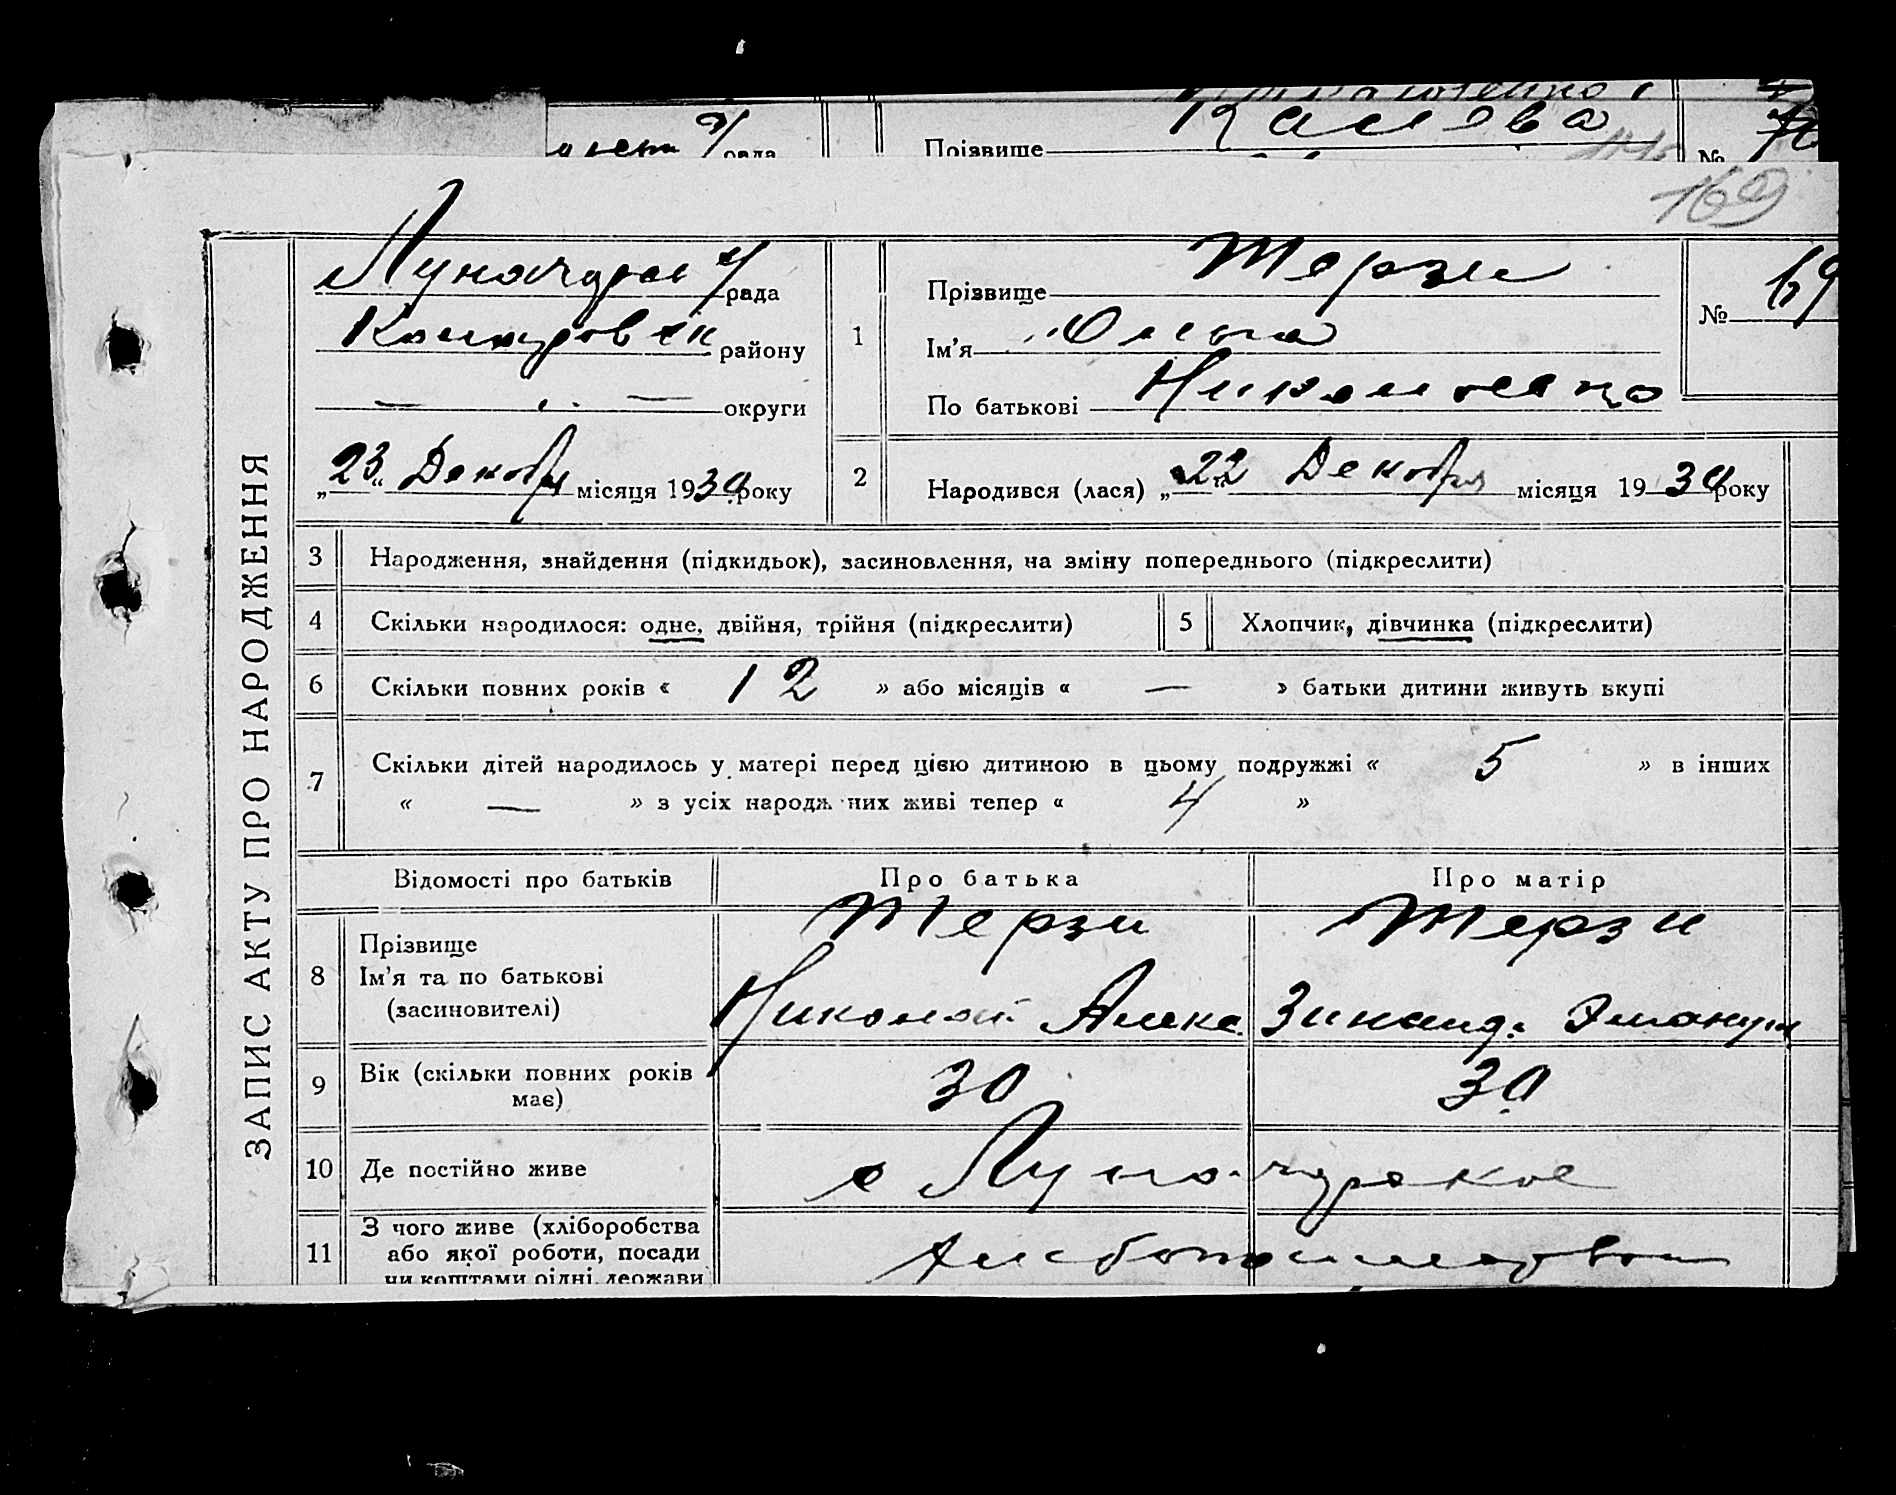 Прізвище
169
ЗАПИС АКТУ ПРО НАРОДЖЕННЯ
рада
району
округи
„23“ Декабря місяця 1930 року
1
Прізвище Терзи
Ім’я Ольга
По батькові Николаевна
№ 69
2
Народився (лася) „22“ Декабря місяця 1930 року
3 Народження, знайдення (підкидьок), засиновлення, на зміну попереднього (підкреслити)
4 Скільки народилося: одне, двійня, трійня (підкреслити)
5 Хлопчик, дівчинка (підкреслити)
6 Скільки повних років « 12 » або місяців « — » батьки дитини живуть вкупі
7 Скільки дітей народилось у матері перед цією дитиною в цьому подружжі « 5 » в інших
« — » з усіх народж них живі тепер « 4 »
Відомості про батьків
Про батька
Про матір
8 Прізвище
Ім’я та по батькові
(засиновителі)
Терзи
Николай Алекс.
Терзи
Зинаид.
9 Вік (скільки повних років
має)
30
30
10 Де постійно живе
с Луначарское
11 З чого живе (хліборобства
або якої роботи, посади
чи коштами рідні, держави